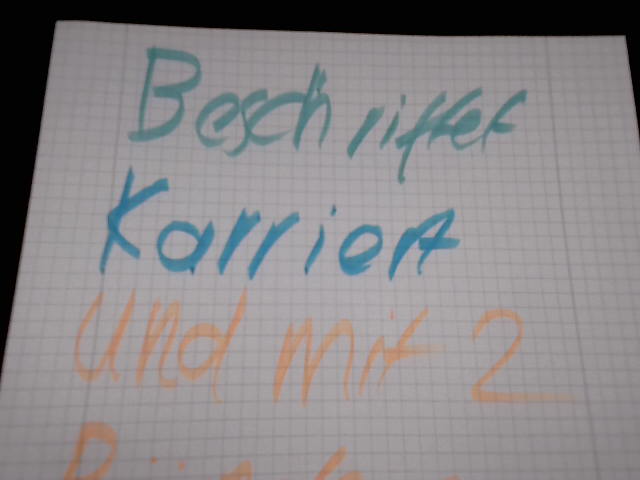 Beschriftet
Karriert
Und mit 2